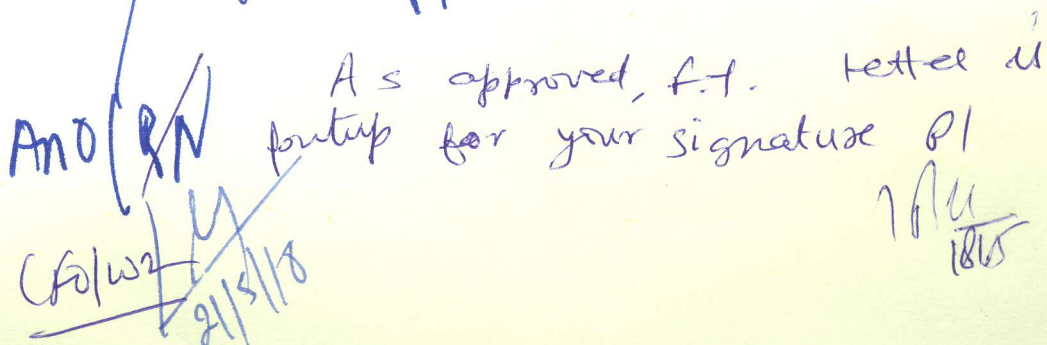 As approved, f.f. letter is
AnO/RN putup for your signature Pl
18/5
CFO/WZ
21/5/18